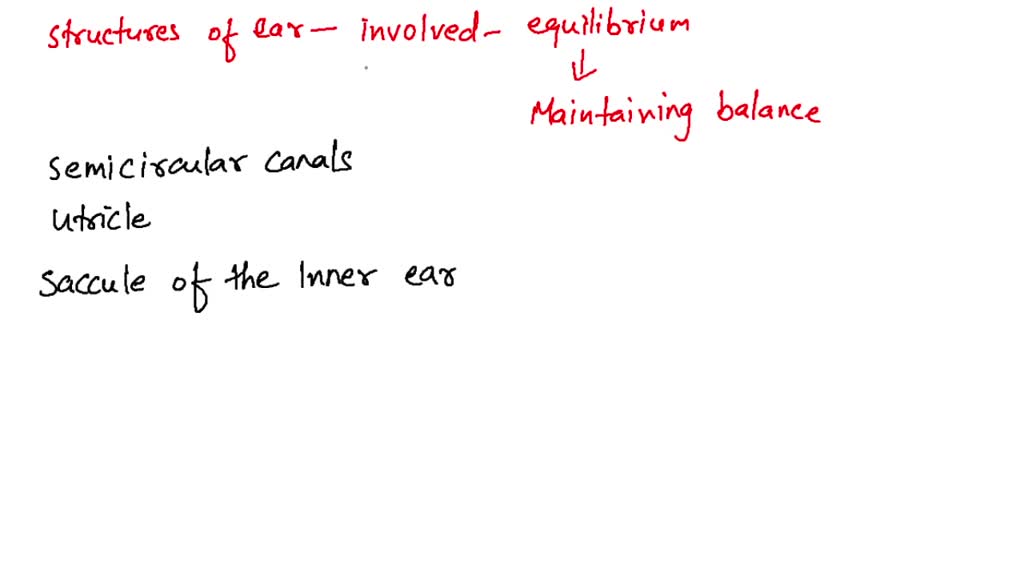 structures of ear — involved — equilibrium
↓
Maintaining balance
semicircular canals
utricle
saccule of the Inner ear